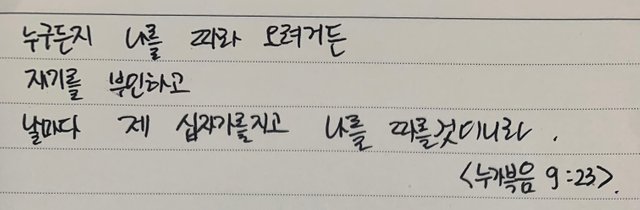 누구든지 나를 따라 오려거든
자기를 부인하고
날마다 제 십자가를지고 나를 따를것이니라.
<누가복음 9:23>.